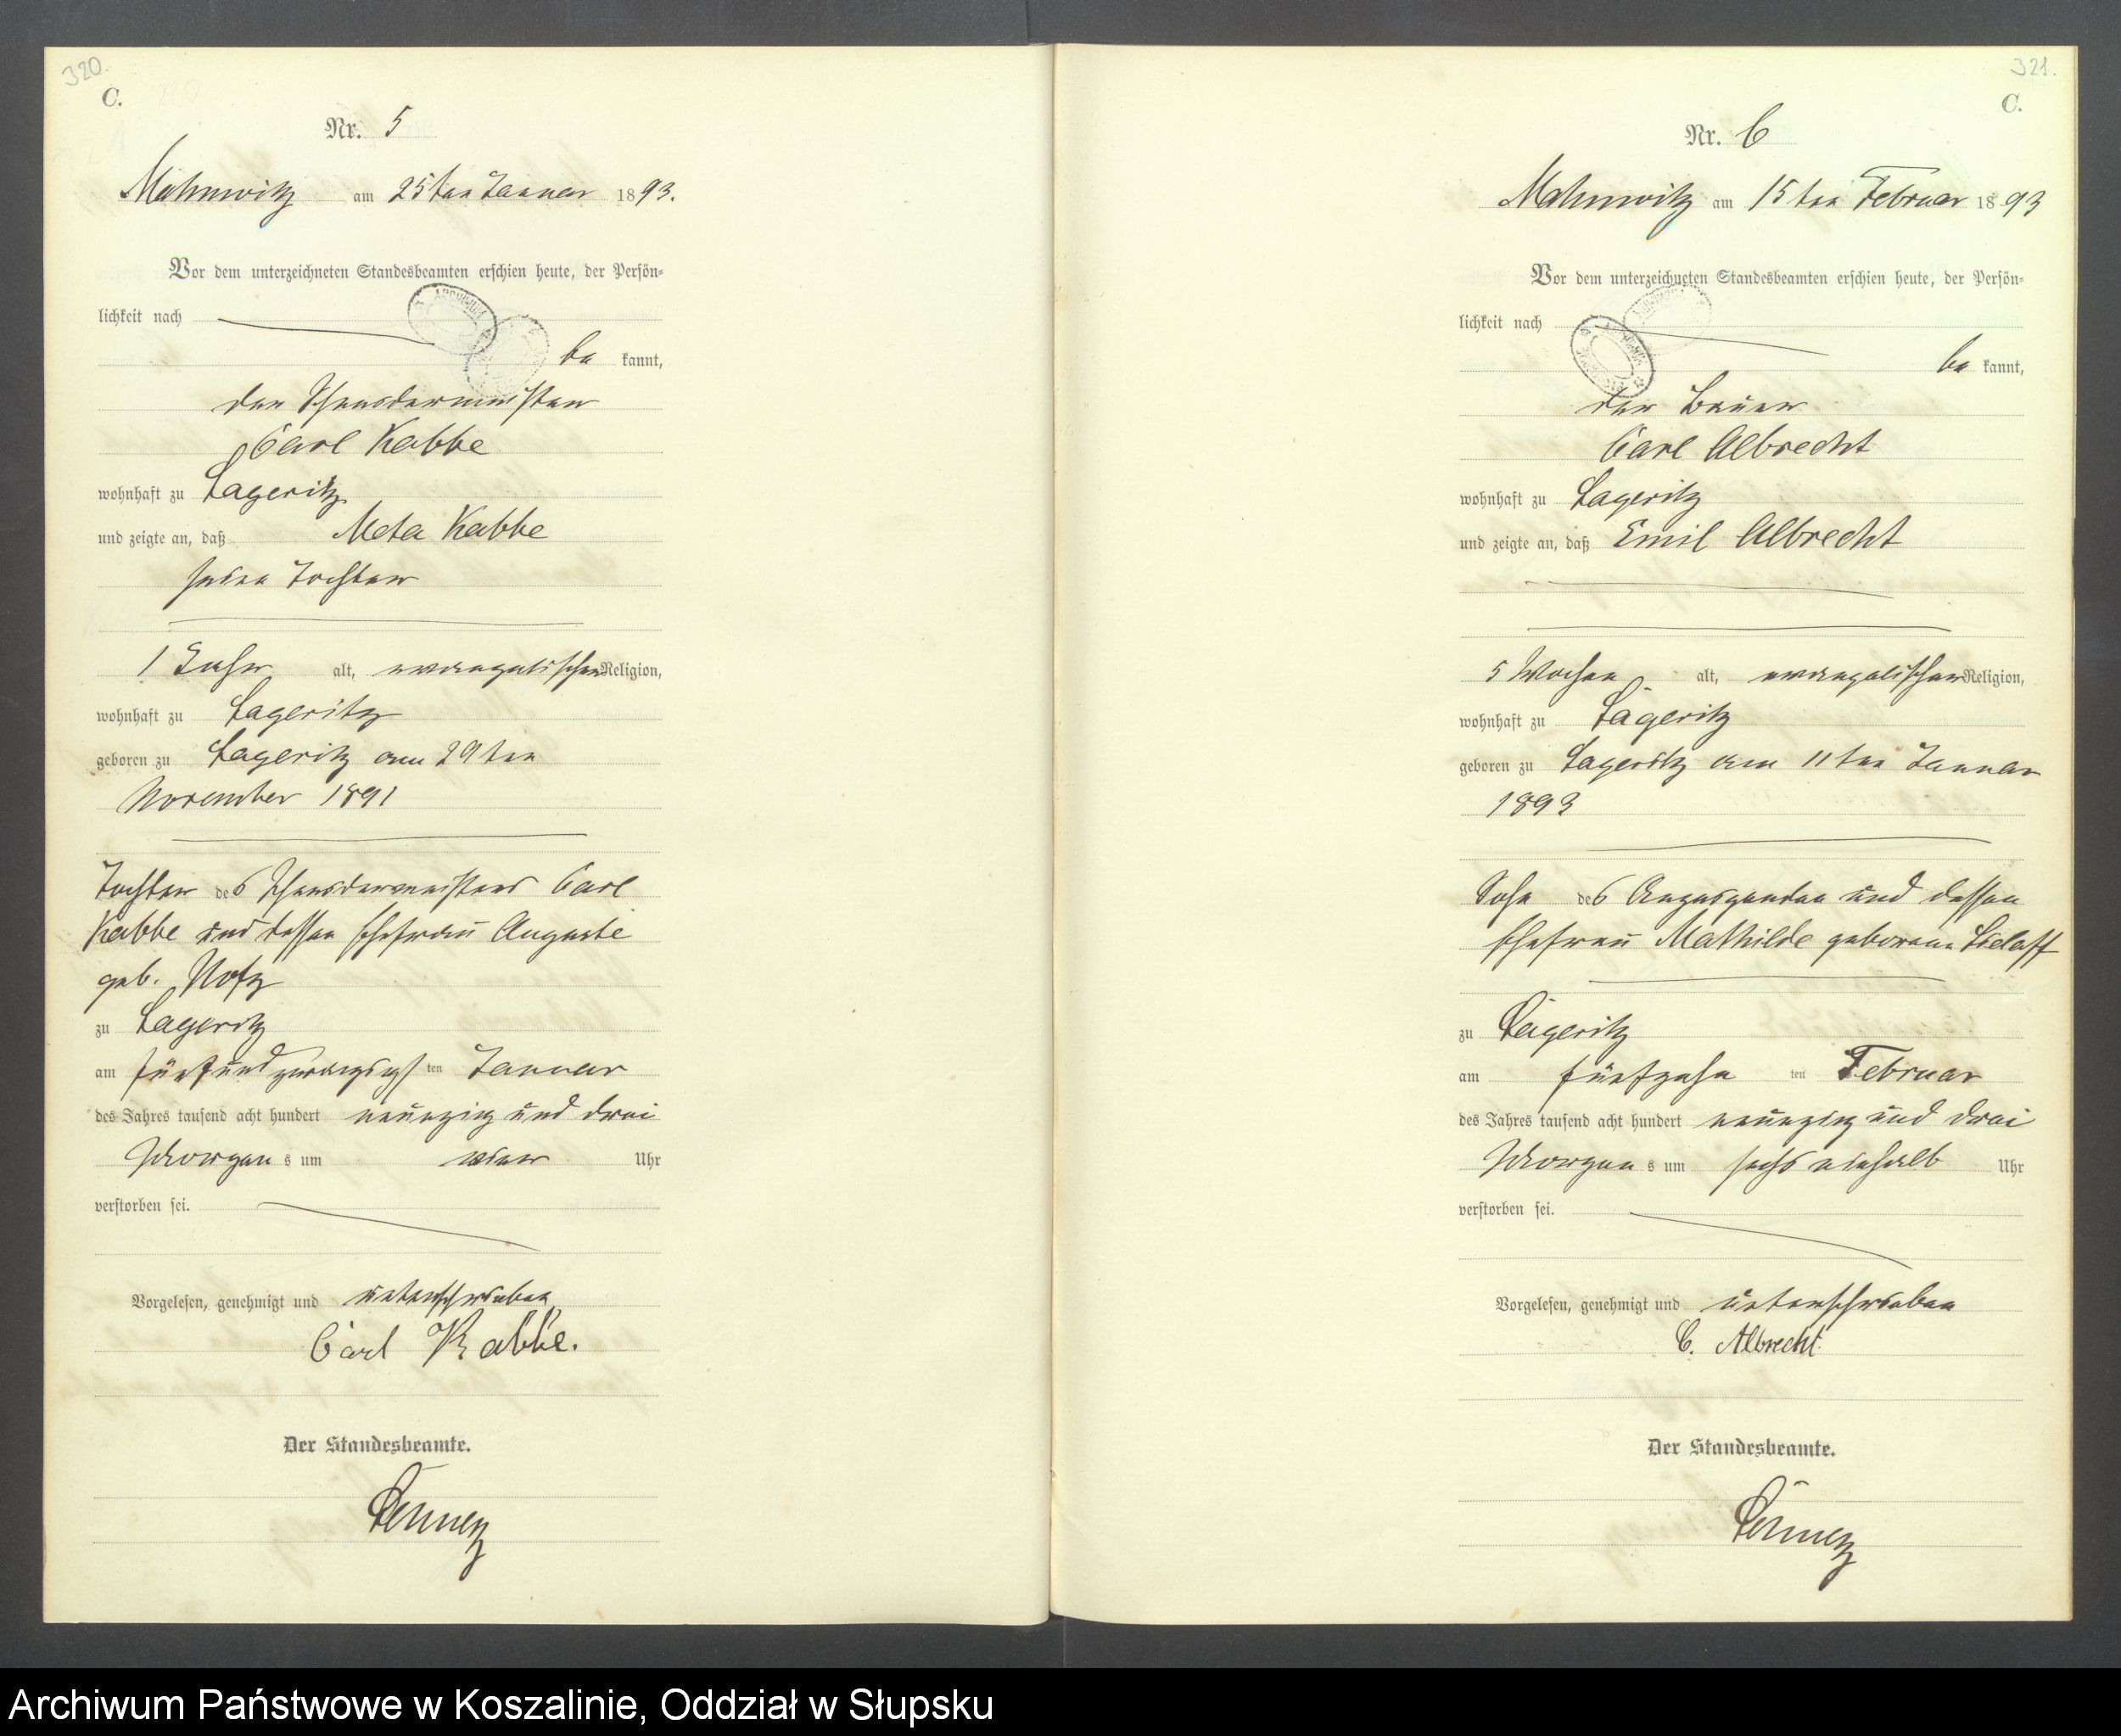 320.
C.
Nr. 5
Mahnwitz am 25ten Januar 1893.
Vor dem unterzeichneten Standesbeamten erschien heute, der Persön-
lichkeit nach
be kannt,
der Schneidermeister
Carl Kabbe
wohnhaft zu Lageritz
und zeigte an, daß Meta Kabbe
seine Tochter
1 Jahr alt, evangelischer Religion,
wohnhaft zu Lageritz
geboren zu Lageritz am 29ten
November 1891
Tochter des Schneidermeisters Carl
Kabbe und dessen Ehefrau Auguste
geb.
zu Lageritz
am fünfundzwanzigsten Januar
des Jahres tausend acht hundert neunzig und drei
Morgens um vier Uhr
verstorben sei.
Vorgelesen, genehmigt und unterschrieben
Carl Kabbe.
Der Standesbeamte.
321.
C.
Nr. 6
Mahnwitz am 15ten Februar 1893
Vor dem unterzeichneten Standesbeamten erschien heute, der Persön-
lichkeit nach
be kannt,
der Bauer
Carl Albrecht
wohnhaft zu Lageritz
und zeigte an, daß Emil Albrecht
5 Wochen alt, evangelischer Religion,
wohnhaft zu Lageritz
geboren zu Lageritz am 11ten Januar
1893
Sohn des Anzeigenden und dessen
Ehefrau Mathilde geborene
zu Lageritz
am fünfzehn ten Februar
des Jahres tausend acht hundert neunzig und drei
Morgens um sechs einhalb Uhr
verstorben sei.
Vorgelesen, genehmigt und unterschrieben
C. Albrecht
Der Standesbeamte.
Archiwum Państwowe w Koszalinie, Oddział w Słupsku